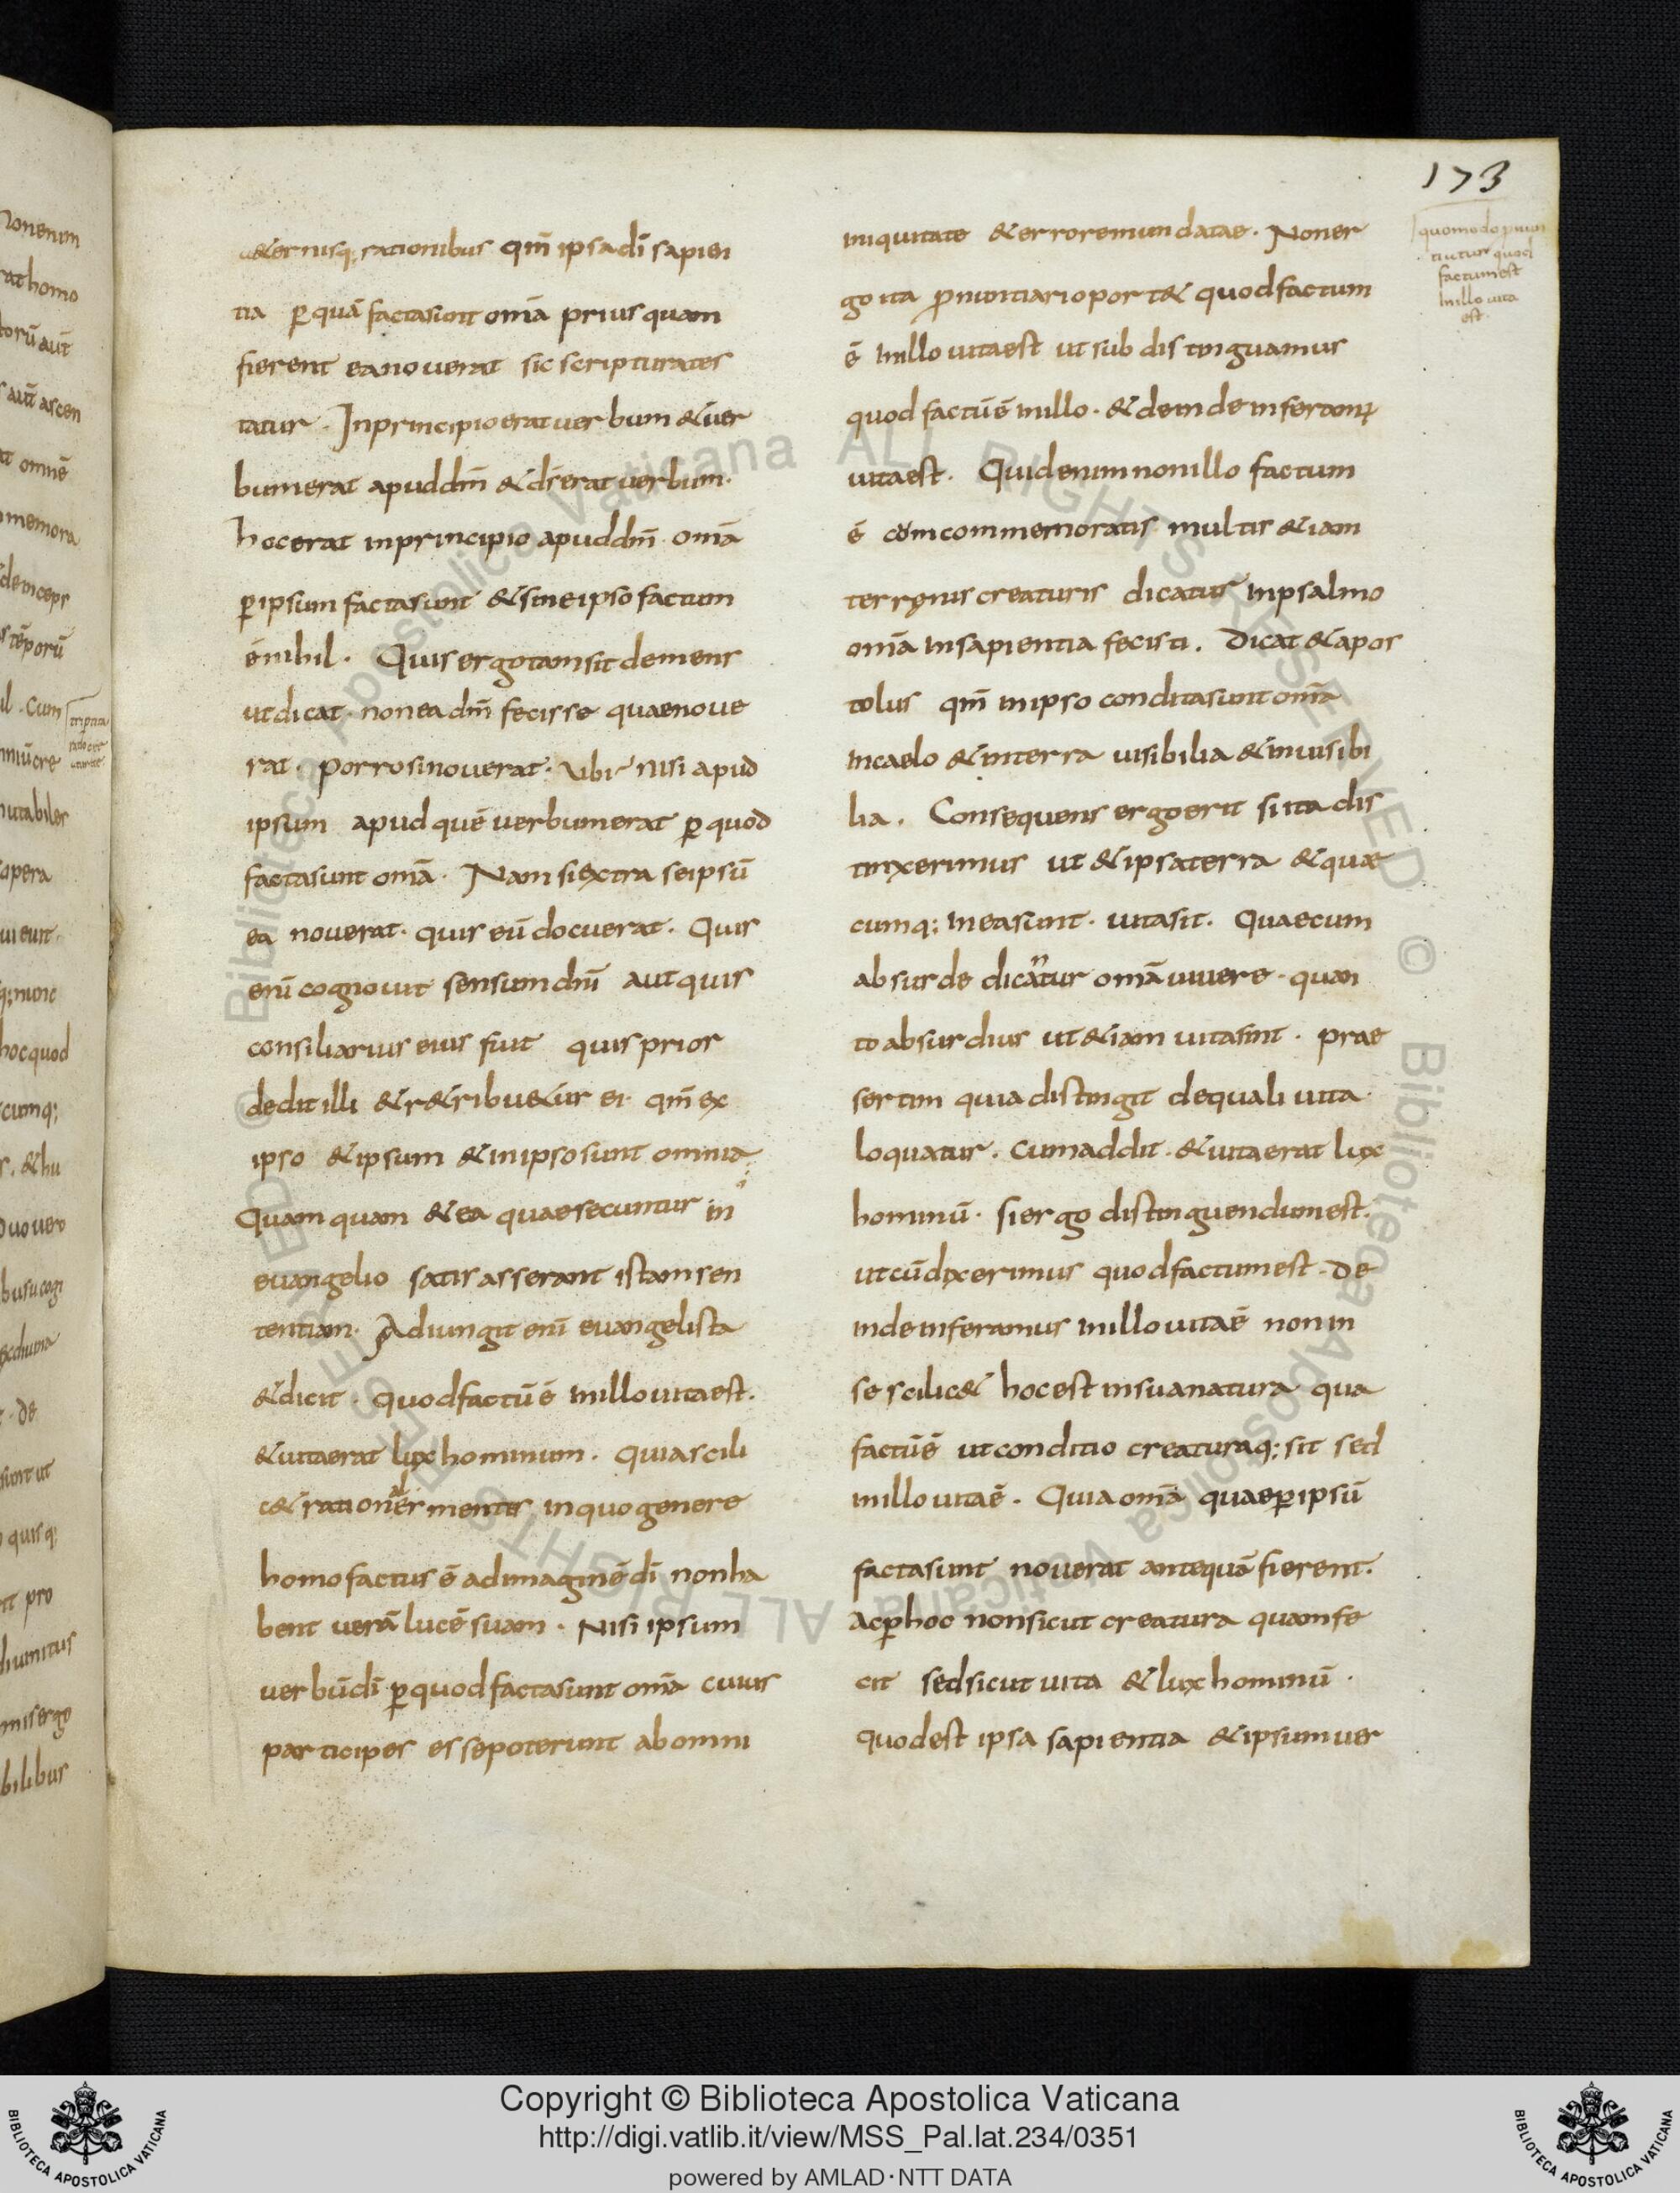 173
&ernisq; rationibus qm̄ ipsa dī sapien
tia ꝑ quā facta sunt om̄a prius quam
fierent ea nouerat sic scriptura tes
tatur. In principio erat uerbum & uer
bum erat apud dm̄ & ds̄ erat uerbum.
hoc erat in principio apud dm̄ om̄a
ꝑ ipsum facta sunt & sine ipso factum
ē nihil. Quis ergo tam sit demens
ut dicat. non ea dm̄ fecisse quae noue
rat. porro si nouerat. ubi nisi apud
ipsum apud quē uerbum erat ꝑ quod
facta sunt om̄a. Nam si extra se ipsū
ea nouerat. quis eū docuerat. Quis
enī cognouit sensum dn̄i aut quis
consiliarius eius fuit quis prior
dedit illi & r&ribu&ur ei. qm̄ ex
ipso & ipsum & in ipso sunt omnia
Quam quam & ea quae secuntur in
euangelio satis asserant istam sen
tentiam. Adiungit enī euangelista
& dicit. quod factū ē in illo uita est.
& uita erat lux hominum. quia scili
c& rationales mentes in quo genere
homo factus ē ad imaginē dī non ha
bent uerā lucē suam. Nisi ipsum
uerbū dī ꝑ quod facta sunt om̄a cuius
participes esse poterunt ab omni
iniquitate & errore mundatae. Non er
go ita ꝓnuntiari oport& quod factum
ē in illo uita est ut subdistinguamus
quod factū ē in illo. & deinde inferamꝰ
uita est. Quid enim non illo factum
ē cum commemoratis multis &iam
terrenis creaturis dicatur in psalmo
om̄a in sapientia fecisti. Dicat & apos
tolus qm̄ in ipso condita sunt om̄a
in caelo & in terra uisibilia & inuisibi
lia. Consequens ergo erit si ita dis
tinxerimus ut & ipsa terra & quae
cumq; in ea sunt. uita sit. Quae cum
absurde dicantur om̄a uiuere. quan
to absurdius ut &iam uita sint. prae
sertim quia distingit de quali uita
loquatur. cum addit. & uita erat lux
hominū. si ergo distinguendum est.
ut cū dixerimus quod factum est. de
inde inferamus in illo uita ē non in
se scilic& hoc est in sua natura qua
factū ē ut conditio creaturaq; sit sed
in illo uita ē. Quia om̄a quae ꝑ ipsū
facta sunt nouerat antequā fierent.
Ac ꝑ hoc non sicut creatura quam fe
cit sed sicut uita & lux hominū.
quod est ipsa sapientia & ipsum uer
quomodo pnun
tiatur quod
factum est
in illo uita
est.
Copyright © Biblioteca Apostolica Vaticana
http://digi.vatlib.it/view/MSS_Pal.lat.234/0351
powered by AMLAD·NTT DATA